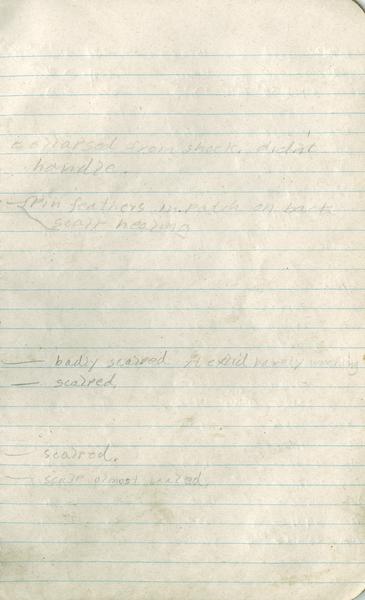 collapsed from shock, didn't
handle.
- Pin feathers in patch on back
scar healing
— badly scarred barely
— scarred,
— scarred.
— scar almost